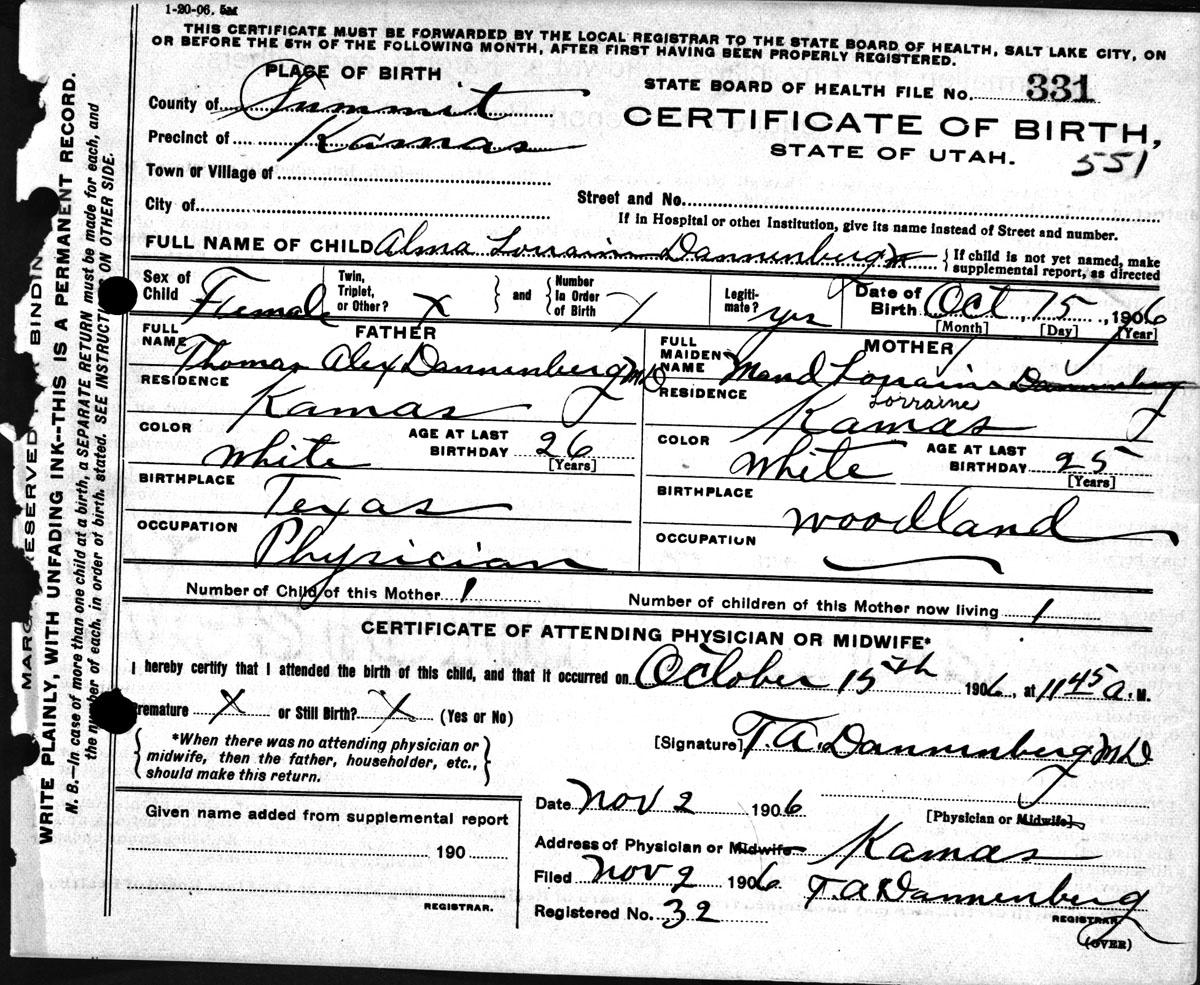 1-20-06. 5M
THIS CERTIFICATE MUST BE FORWARDED BY THE LOCAL REGISTRAR TO THE STATE BOARD OF HEALTH, SALT LAKE CITY, ON
OR BEFORE THE 5TH OF THE FOLLOWING MONTH, AFTER FIRST HAVING BEEN PROPERLY REGISTERED.
PLACE OF BIRTH
STATE BOARD OF HEALTH FILE No. 331
County of Summit
CERTIFICATE OF BIRTH,
Precinct of Kamas
STATE OF UTAH.
551
Town or Village of
City of
Street and No.
If in Hospital or other Institution, give its name instead of Street and number.
FULL NAME OF CHILD Alma Lorrain Dannenberg { If child is not yet named, make supplemental report, as directed
Sex of Child Female Twin, Triplet, or Other? X } and { Number in Order of Birth / Legitimate? yes Date of Birth Oct 15, 1906
[Month] [Day] [Year]
FATHER
FULL NAME Thomas Alex Dannenberg MD
RESIDENCE Kamas
COLOR White AGE AT LAST BIRTHDAY 26
[Years]
BIRTHPLACE Texas
OCCUPATION Physician
MOTHER
FULL MAIDEN NAME Maud Lorraine Dannenberg
Lorraine
RESIDENCE Kamas
COLOR White AGE AT LAST BIRTHDAY 25
[Years]
BIRTHPLACE Woodland
OCCUPATION
Number of Child of this Mother 1 Number of children of this Mother now living 1
CERTIFICATE OF ATTENDING PHYSICIAN OR MIDWIFE*
I hereby certify that I attended the birth of this child, and that it occurred on October 15th 1906, at 11 45 a. M.
Premature X or Still Birth? X (Yes or No)
{ *When there was no attending physician or
midwife, then the father, householder, etc.,
should make this return. }
[Signature] T. A. Dannenberg MD
[Physician or Midwife]
Date Nov 2 1906
Address of Physician or Midwife Kamas
Filed Nov 2 1906. T. A. Dannenberg
REGISTRAR.
Registered No. 32
(OVER)
Given name added from supplemental report
190
REGISTRAR.
MARG RESERVED BINDIN
WRITE PLAINLY, WITH UNFADING INK--THIS IS A PERMANENT RECORD.
N. B.—In case of more than one child at a birth, a SEPARATE RETURN must be made for each, and
the number of each, in order of birth, stated. SEE INSTRUCTIONS ON OTHER SIDE.